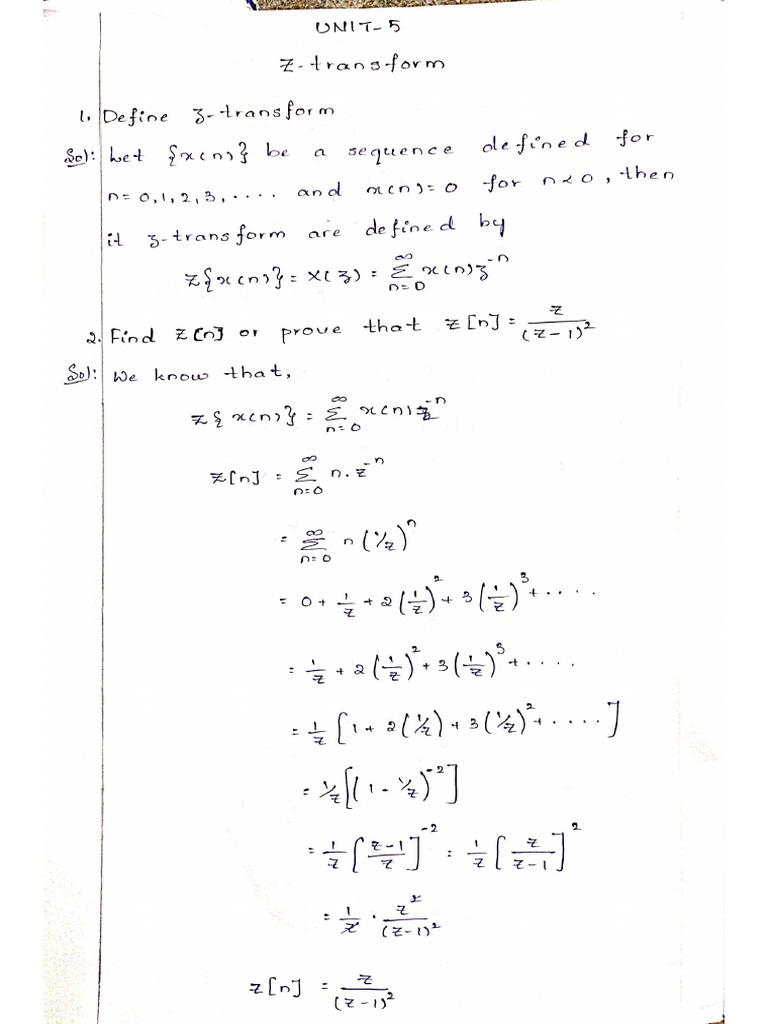 UNIT-5
Z-transform
1. Define z-transform
Sol: Let {x(n)} be a sequence defined for
n = 0, 1, 2, 3, .... and x(n) = 0 for n < 0, then
it z-transform are defined by
Z{x(n)} = X(z) = ∑_{n=0}^{∞} x(n) z^{-n}
2. Find Z[n] or prove that Z[n] = z/(z-1)^2
Sol: We know that,
Z{x(n)} = ∑_{n=0}^{∞} x(n) z^{-n}
Z[n] = ∑_{n=0}^{∞} n.z^{-n}
= ∑_{n=0}^{∞} n (1/z)^n
= 0 + 1/z + 2(1/z)^2 + 3(1/z)^3 + ....
= 1/z + 2(1/z)^2 + 3(1/z)^3 + ....
= 1/z [1 + 2(1/z) + 3(1/z)^2 + ....]
= 1/z [(1 - 1/z)^{-2}]
= 1/z [z-1/z]^{-2} = 1/z [z/z-1]^2
= 1/z · z^2/(z-1)^2
Z[n] = z/(z-1)^2